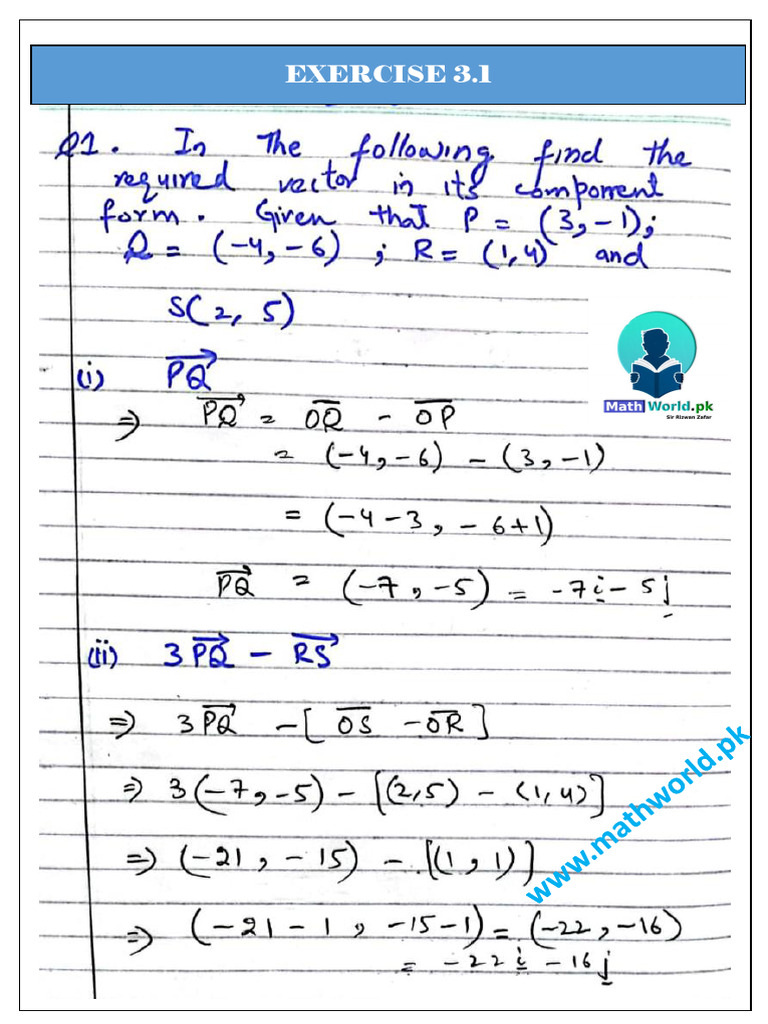 EXERCISE 3.1
Q1. In The following find the
required vector in its component
form. Given that P = (3, -1);
Q = (-4, -6) ; R = (1, 4) and
S(2, 5)
Math World.pk
Sir Rizwan Zafar
(i) PQ⃗
⇒ PQ⃗ = OQ̅ - OP̅
= (-4, -6) - (3, -1)
= (-4-3, -6+1)
PQ⃗ = (-7, -5) = -7i - 5j
(ii) 3PQ⃗ - RS⃗
⇒ 3PQ⃗ - [OS̅ - OR̅]
www.mathworld.pk
⇒ 3(-7, -5) - [(2,5) - (1,4)]
⇒ (-21, -15) - [(1, 1)]
⇒ (-21-1, -15-1) = (-22, -16)
= -22i - 16j